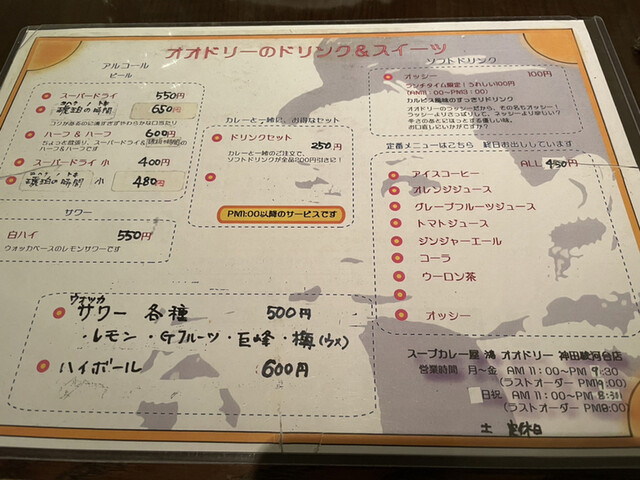 オオドリーのドリンク&スイーツ
アルコール
ビール
スーパードライ 550円
琥珀の時間 650円
コクがあるのに済すぎずやわらかな口あたり
ハーフ＆ハーフ 600円
ちょっと欲張り、スーパードライ&琥珀の時間の
ハーフ&ハーフです
スーパードライ 小 400円
琥珀の時間 小 480円
サワー
白ハイ 550円
ウォッカベースのレモンサワーです
カレーと一緒に、お得なセット
ドリンクセット 250円
カレーと一緒のご注文で、
ソフトドリンクが全品200円引きに！
PM11:00以降のサービスです
ソフトドリンク
オッシー 100円
ランチタイム限定！うれしい100円
(AM11：00～PM3：00)
カルピス風味のすっぎりドリンク
オオドリーのラッシーだから、その名もオッシー！
ラッシーよりさっぱりして、ネッシーより珍しい？
辛さのあとにほっとする優しい味。
お口直しにいかがですか？
定番メニューはこちら 終日お出ししています
ALL 450円
アイスコーヒー
オレンジジュース
グレープフルーツジュース
トマトジュース
ジンジャーエール
コーラ
ウーロン茶
オッシー
ウォッカ
サワー 各種 500円
・レモン・Gフルーツ・巨峰・梅(ウメ)
ハイボール 600円
スープカレー屋 鴻 オオドリー 神田駿河台店
営業時間 月～金 AM 11：00～PM 9:30
(ラストオーダー PM9:00)
日祝 AM 11：00～PM 8:30
(ラストオーダー PM8:00)
土 定休日